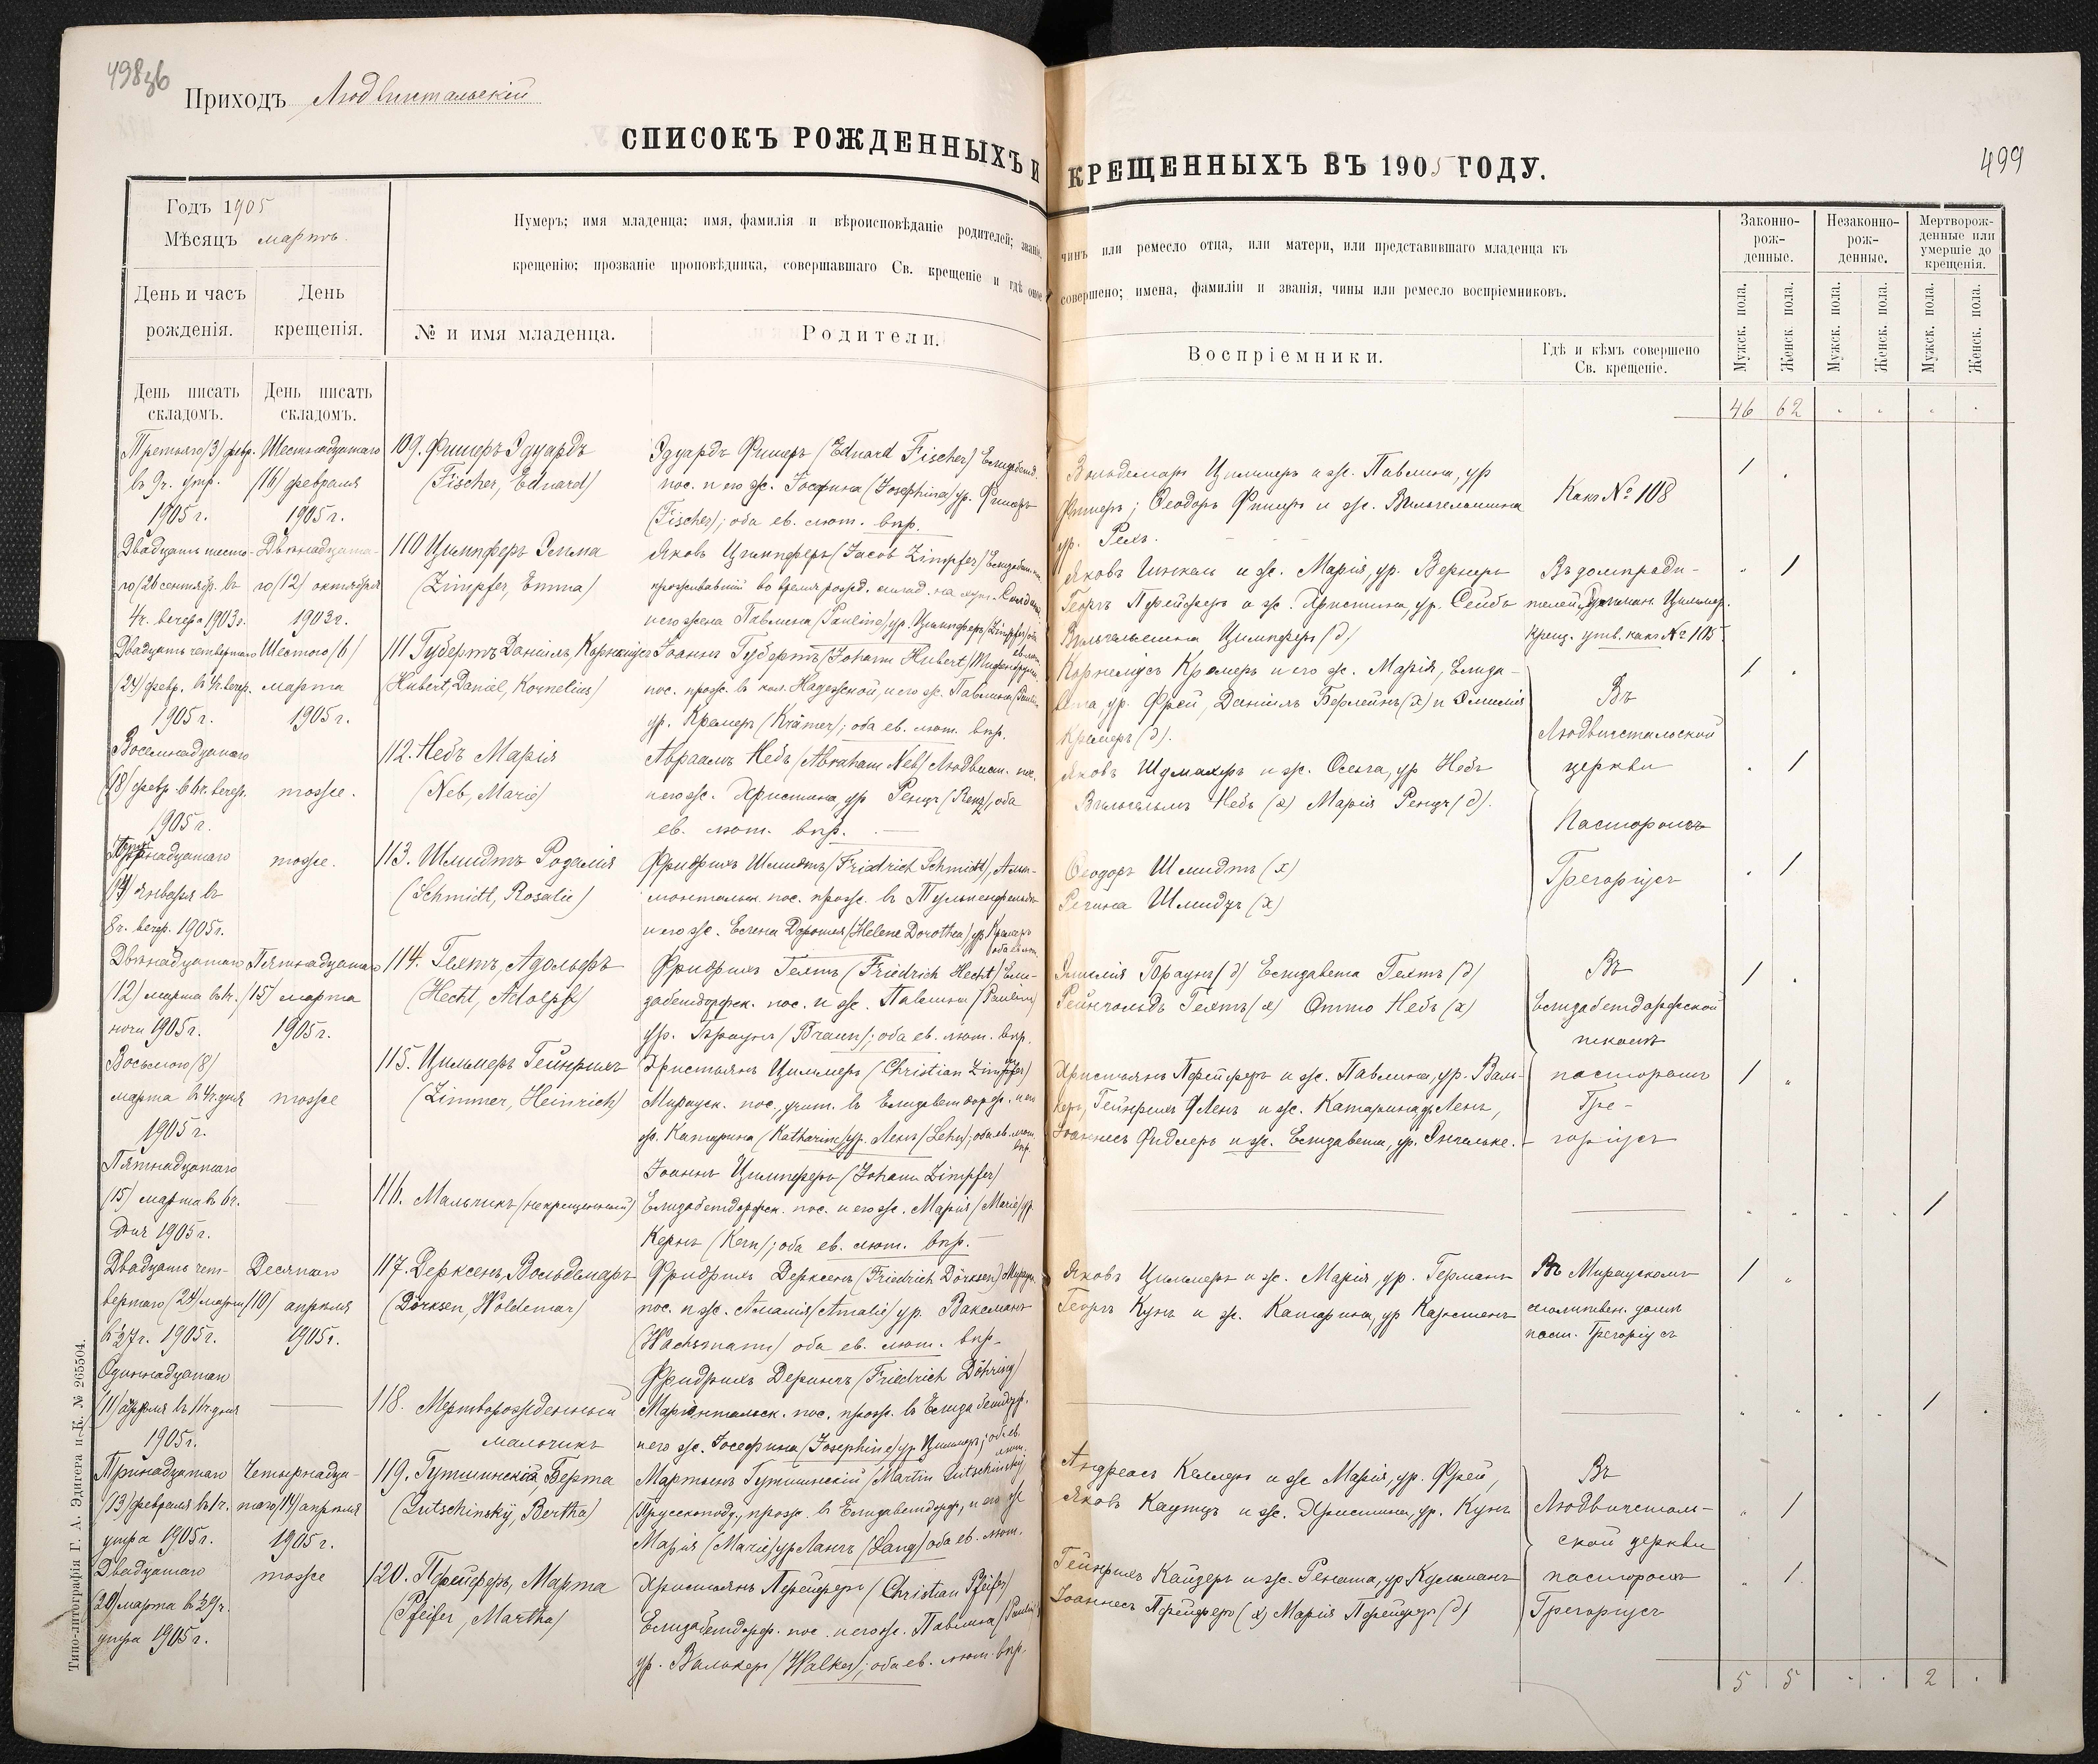 498зб
Приходъ Людвигтальскій
СПИСОКЪ РОЖДЕННЫХЪ И КРЕЩЕННЫХЪ ВЪ 1905 ГОДУ.
499
Годъ 1905
Мѣсяцъ мартъ.
Нумеръ; имя младенца; имя, фамилія и вѣроисповѣданіе родителей; званіе, чинъ или ремесло отца, или матери, или представившаго младенца къ
крещенію; прозваніе проповѣдника, совершавшаго Св. крещеніе и гдѣ оное совершено; имена, фамиліи и званія, чины или ремесло воспріемниковъ.
День и часъ рожденія.
День крещенія.
№ и имя младенца.
Родители.
Воспріемники.
Гдѣ и кѣмъ совершено Св. крещеніе.
Законно-рож-денные.
Незаконно-рож-денные.
Мертворож-денные или умершіе до крещенія.
Мужск. пола.
Женск. пола.
Мужск. пола.
Женск. пола.
Мужск. пола.
Женск. пола.
День писать складомъ.
День писать складомъ.
46 62 . . . .
Третьяго (3) февр.
в 9ч. утр.
1905 г.
Шестнадцатаго
(16) февраля
1905 г.
109. Фишеръ Эдуардъ
(Fischer, Eduard)
Эдуардъ Фишеръ (Eduard Fischer) Елизабетд.
пос. и его ж. Іосефина (Josephina) ур. Фишеръ
(Fischer); оба ев. лют. впр.
Вольдемаръ Циммеръ и ж. Павлина, ур
Фишеръ; Ѳеодоръ Фишеръ и ж. Вильгельмина
ур.
Какъ № 108
1 .
Двадцать шесто-
го (26 сентябр. въ
4ч. вечера 1903г.
Двѣнадцата-
го (12) октября
1903г.
110 Цимпферъ Эмма
(Zimpfer, Emma)
Яковъ Цимпферъ (Jacob Zimpfer)
проживавшій во время рожд. млад. на хут.
и его жена Павлина (Pauline) ур. Цимпферъ (Zimpfer)
Яковъ Инкель и ж. Марія, ур. Вернеръ
Георгъ Пфейферъ и ж. Христина, ур. Сейбъ
Вильгельмина Цимпферъ (д)
Въ домѣ роди-
телей, Циммер.
крещ. утв. какъ № 105
. 1
Двадцать четвертаго
(24) февр. в 4ч. вечер.
1905 г.
Шестого (6)
марта
1905 г.
111 Губертъ Даніилъ, Корнеліусъ
(Hubert, Daniel, Kornelius)
Іоаннъ Губертъ (Johann Hubert)
пос. прож. в кол. Надежской, и его ж. Павлина
ур. Кремеръ (Krämer); оба ев. лют. впр.
Корнеліусъ Кремеръ и его ж. Марія, Елиза-
вета ур. Фрей, Даніилъ Берлейнъ (х) и Эмилія
Кремеръ (д).
Въ
Людвигстальской
церкви
1 .
Восемнадцатаго
(18) февр в 6ч. вечер.
1905 г.
тоже.
112. Небъ Марія
(Neb, Marie)
Авраамъ Небъ (Abraham Neb) Людвигт. пос.
и его ж. Христина, ур Ренцъ (Renz), оба
ев. лют. впр.
Яковъ Шумахеръ и ж. Ольга, ур Небъ
Вильгельмъ Небъ (х) Марія Ренцъ (д).
Пасторомъ
. 1
(14) января въ
8ч. вечер. 1905 г.
тоже.
113. Шмидтъ Розалія
(Schmidt, Rosalie)
Фридрихъ Шмидтъ (Friedrich Schmidt),
пос. прож. въ
и его ж. Елена Доротея (Helene Dorothea) ур. Кремеръ
оба ев. лют.
Ѳеодоръ Шмидтъ (х)
Регина Шмидтъ (х)
Грегоріусъ
. 1
Двѣнадцатаго
(12) марта в 1ч.
ночи 1905 г.
Пятнадцатаго
(15) марта
1905 г.
114. Гехтъ, Адольфъ
(Hecht, Adolph)
Фридрихъ Гехтъ (Friedrich Hecht) Ели-
забетдорфск. пос. и ж. Павлина (Pauline)
ур. Браунъ (Braun); оба ев. лют. впр.
Эмилія Браунъ (д) Елизавета Гехтъ (д)
Рейнгольдъ Гехтъ (х) Отто Небъ (х)
Въ
Елизабетдорфской
школѣ
1 .
Восьмого (8)
марта в 4ч. дня
1905 г.
тоже
115. Циммеръ Гейнрихъ
(Zimmer, Heinrich)
Христьянъ Циммеръ (Christian Zimmer)
Мирауск. пос., учит. въ Елизаветдорф. и его
ж. Катарина (Katharina) ур. Ленъ (Lehn); оба ев. лют. впр.
Христьянъ Пфейферъ и ж. Павлина, ур. Валь-
керъ, Гейнрихъ Ленъ и ж. Катарина ур. Ленъ,
Іоаннесъ Фидлеръ и ж. Елизавета, ур.
пасторомъ
Гре-
горіусъ
1 .
Пятнадцатаго
(15) марта в 6ч.
дня 1905 г.
116. Мальчикъ (некрещенный)
Іоаннъ Цимпферъ (Johann Zimpfer)
Елизабетдорфск. пос. и его ж. Марія (Marie) ур.
Кернъ (Kern); оба ев. лют. впр.
. . . . 1
Двадцать чет-
вертаго (24) марта
1905 г.
Десятаго
(10) апрѣля
1905 г.
117. Дерксенъ, Вольдемаръ
(Dörksen, Woldemar)
Фридрихъ Дерксенъ (Friedrich Dörksen) Мирауск.
пос. и ж. Амалія (Amalie) ур. Ваксманъ
(Wachsmann) оба ев. лют. впр.
Яковъ Циммеръ и ж. Марія, ур. Германъ
Георгъ Кунъ и ж. Катарина, ур Карстенъ
Въ Мираускомъ
молитвен. домѣ
паст. Грегоріусъ
1 .
Одиннадцатаго
(11) апрѣля в 11ч. дня
1905 г.
118. Мертворожденный
мальчикъ
Фридрихъ Дерингъ (Friedrich Döhring)
Маріентальск. пос. прож. въ Елизабетдорф.
и его ж. Іосефина (Josephine) ур Циммеръ; оба ев. лют.
. . . . 1 .
Тринадцатаго
(13) февраля в 1ч.
утра 1905 г.
Четырнадца-
таго (14) апрѣля
1905 г.
119. Гутшинскій, Берта
(Gutschinsky, Bertha)
Мартынъ Гутшинскій (Martin Gutschinsky)
Прусскоподд., прож. в Елизаветдорф, и его ж
Марія (Marie) ур Лангъ (Lang) оба ев. лют.
Андреасъ Келлеръ и ж Марія, ур. Фрей,
Яковъ Каутцъ и ж. Христина, ур. Кунъ
Въ
Людвигсталь-
ской церкви
. 1
Двадцатаго
(20) марта
утра 1905 г.
тоже
120. Пфейферъ, Марта
(Pfeifer, Martha)
Христьянъ Пфейферъ (Christian Pfeifer)
Елизабетдорф. пос. и его ж. Павлина (Pauline)
ур. Валькеръ (Walker); оба ев. лют. впр.
Гейнрихъ Кайзеръ и ж. Рената, ур Кульманъ
Іоаннесъ Пфейферъ (х) Марія Пфейферъ (д)
пасторомъ
Грегоріусъ
. 1
5 5 . . 2 .
Типо-литографія Г. А. Эдигера и К. № 265504.